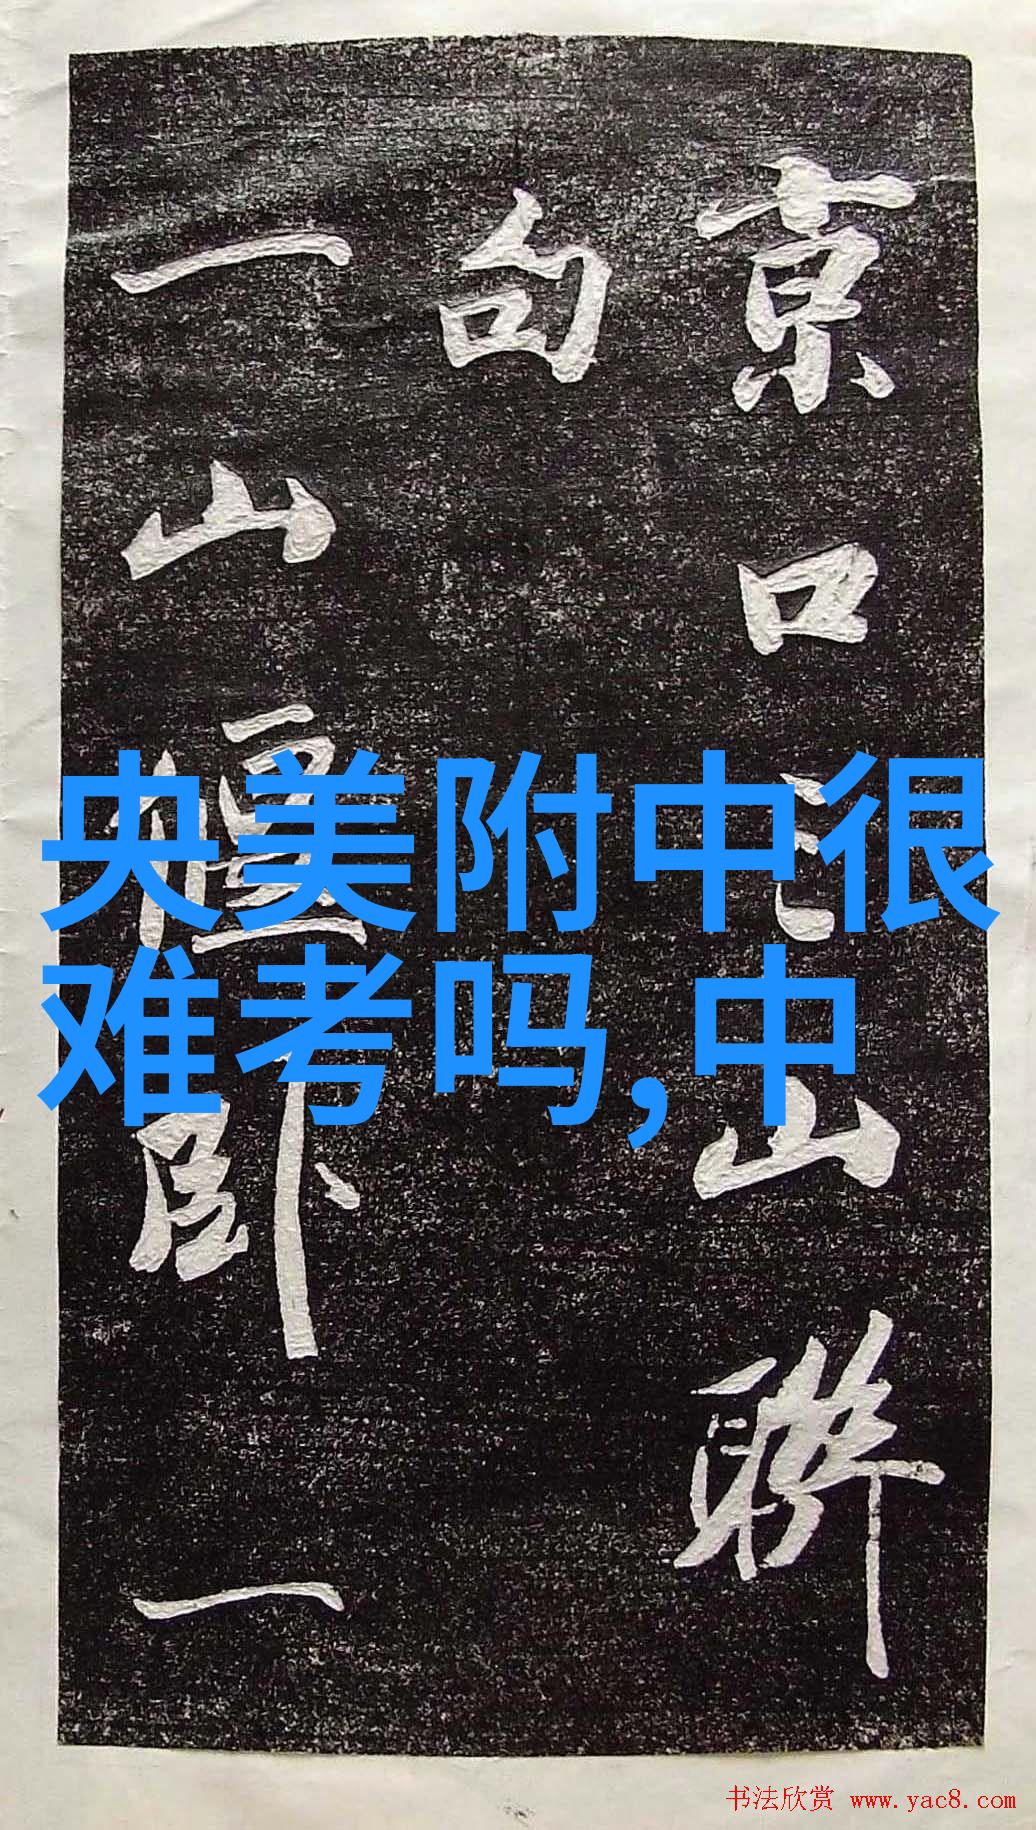 京口三山聯
句
一山僵臥一
央美附中很
难考吗,中
书法欣赏 www.yac8.com